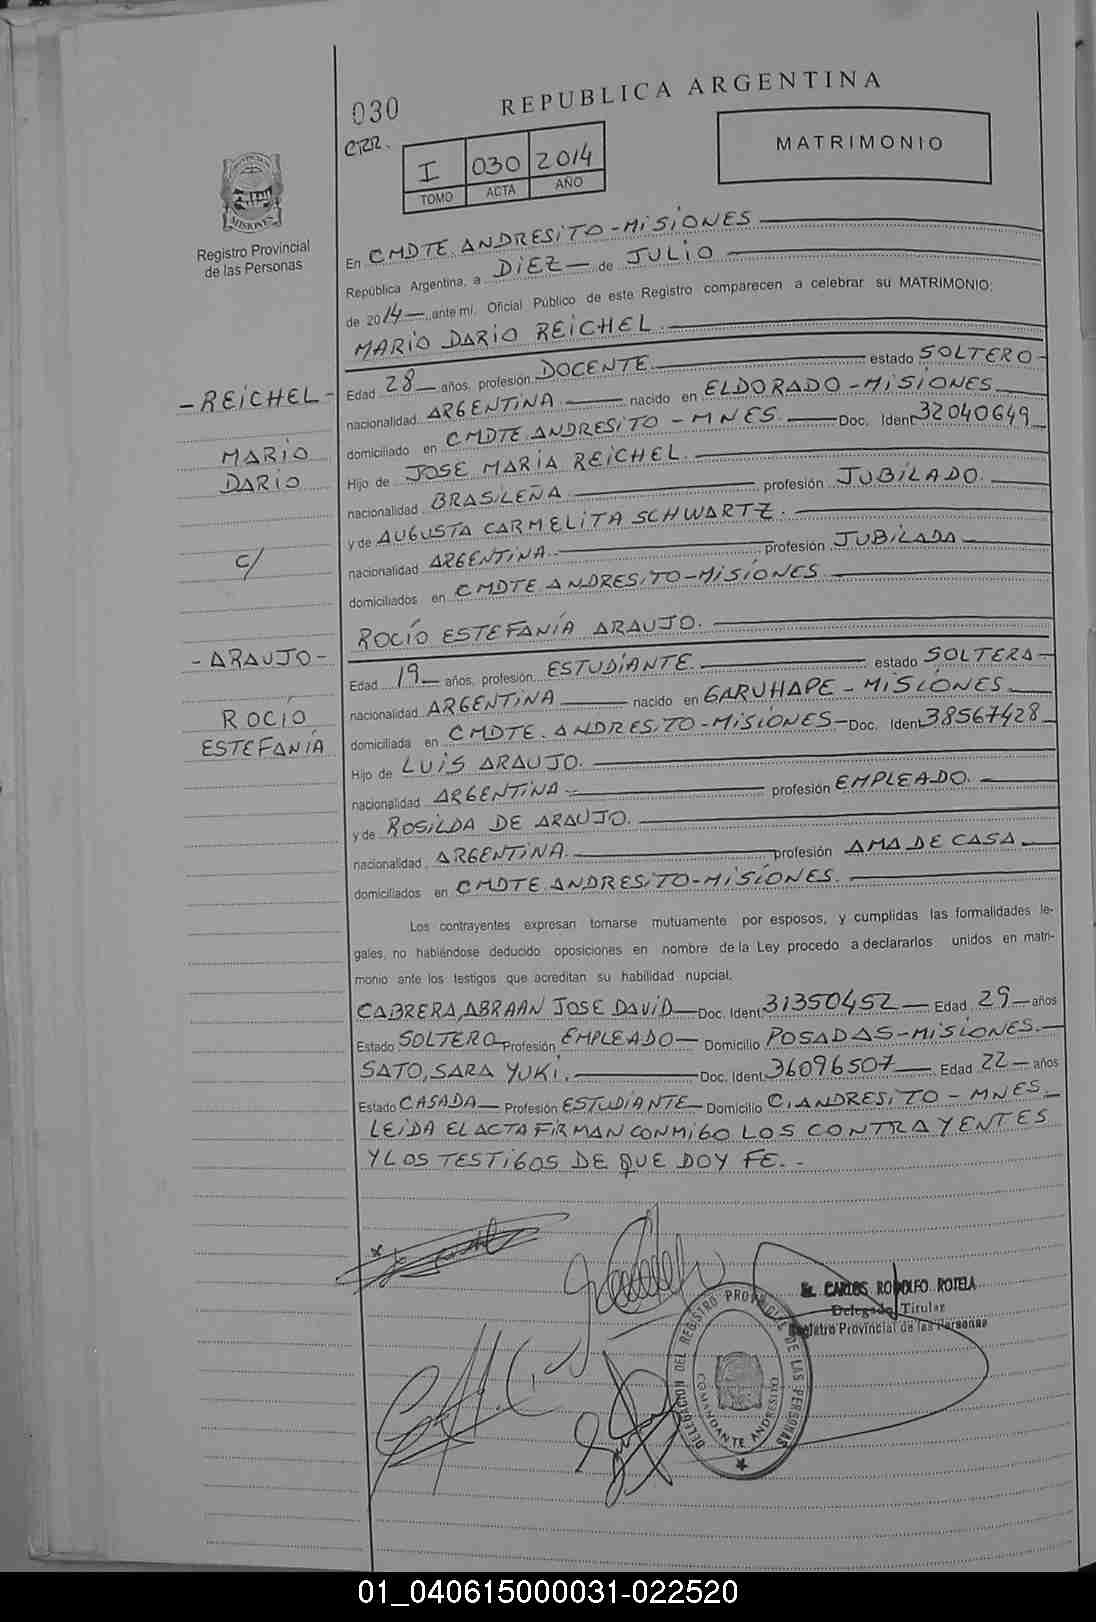 030
REPUBLICA ARGENTINA
CRR.
I 030 2014
TOMO ACTA AÑO
MATRIMONIO
PROVINCIA
MISIONES
Registro Provincial
de las Personas
En CMDTE ANDRESITO - MISIONES
República Argentina, a DIEZ — de JULIO
de 2014 — ante mí, Oficial Público de este Registro comparecen a celebrar su MATRIMONIO:
MARIO DARIO REICHEL.
- REICHEL -
MARIO
DARIO
c/
- ARAUJO -
ROCÍO
ESTEFANÍA
Edad 28 — años, profesión DOCENTE — estado SOLTERO -
nacionalidad ARGENTINA — nacido en ELDORADO - MISIONES
domiciliado en CMDTE ANDRESITO - MNES. — Doc. Ident 32040649
Hijo de JOSE MARIA REICHEL.
nacionalidad BRASILEÑA — profesión JUBILADO.
y de AUGUSTA CARMELITA SCHWARTZ.
nacionalidad ARGENTINA. — profesión JUBILADA
domiciliados en CMDTE ANDRESITO - MISIONES
ROCÍO ESTEFANÍA ARAUJO.
Edad 19 — años, profesión ESTUDIANTE. — estado SOLTERA -
nacionalidad ARGENTINA — nacido en GARUHAPE - MISIONES.
domiciliada en CMDTE. ANDRESITO - MISIONES - Doc. Ident 38567428
Hijo de LUIS ARAUJO.
nacionalidad ARGENTINA — profesión EMPLEADO.
y de ROSILDA DE ARAUJO.
nacionalidad ARGENTINA. — profesión AMA DE CASA.
domiciliados en CMDTE ANDRESITO - MISIONES.
Los contrayentes expresan tomarse mutuamente por esposos, y cumplidas las formalidades le-
gales, no habiéndose deducido oposiciones en nombre de la Ley procedo a declararlos unidos en matri-
monio ante los testigos que acreditan su habilidad nupcial.
CABRERA, ABRAAN JOSE DAVID — Doc. Ident 31350452 — Edad 29 — años
Estado SOLTERO Profesión EMPLEADO — Domicilio POSADAS - MISIONES.
SATO, SARA YUKI. — Doc. Ident 36096507 — Edad 22 — años
Estado CASADA — Profesión ESTUDIANTE — Domicilio C. ANDRESITO - MNES.
LEIDA EL ACTA FIRMAN CONMIGO LOS CONTRAYENTES
Y LOS TESTIGOS DE QUE DOY FE. -
CARLOS RODOLFO ROTELA
Delegado Titular
Registro Provincial de las Personas
DELEGACION DEL REGISTRO PROVINCIAL DE LAS PERSONAS
COMANDANTE ANDRESITO
01_040615000031-022520